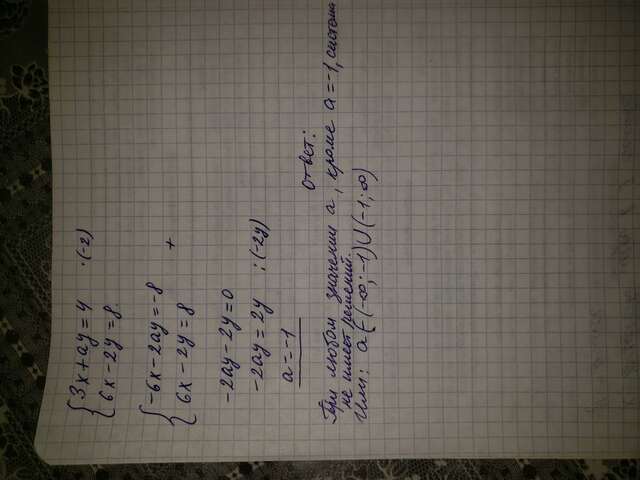 {3x + ay = 4 :(-2)
{6x - 2y = 8
{-6x - 2ay = -8
{6x - 2y = 8 +
-2ay - 2y = 0
-2ay = 2y :(-2y)
a = -1
Ответ:
При любом значении a, кроме a = -1, система
не имеет решений.
Или: a ∈ (-∞; -1) ∪ (-1; ∞)